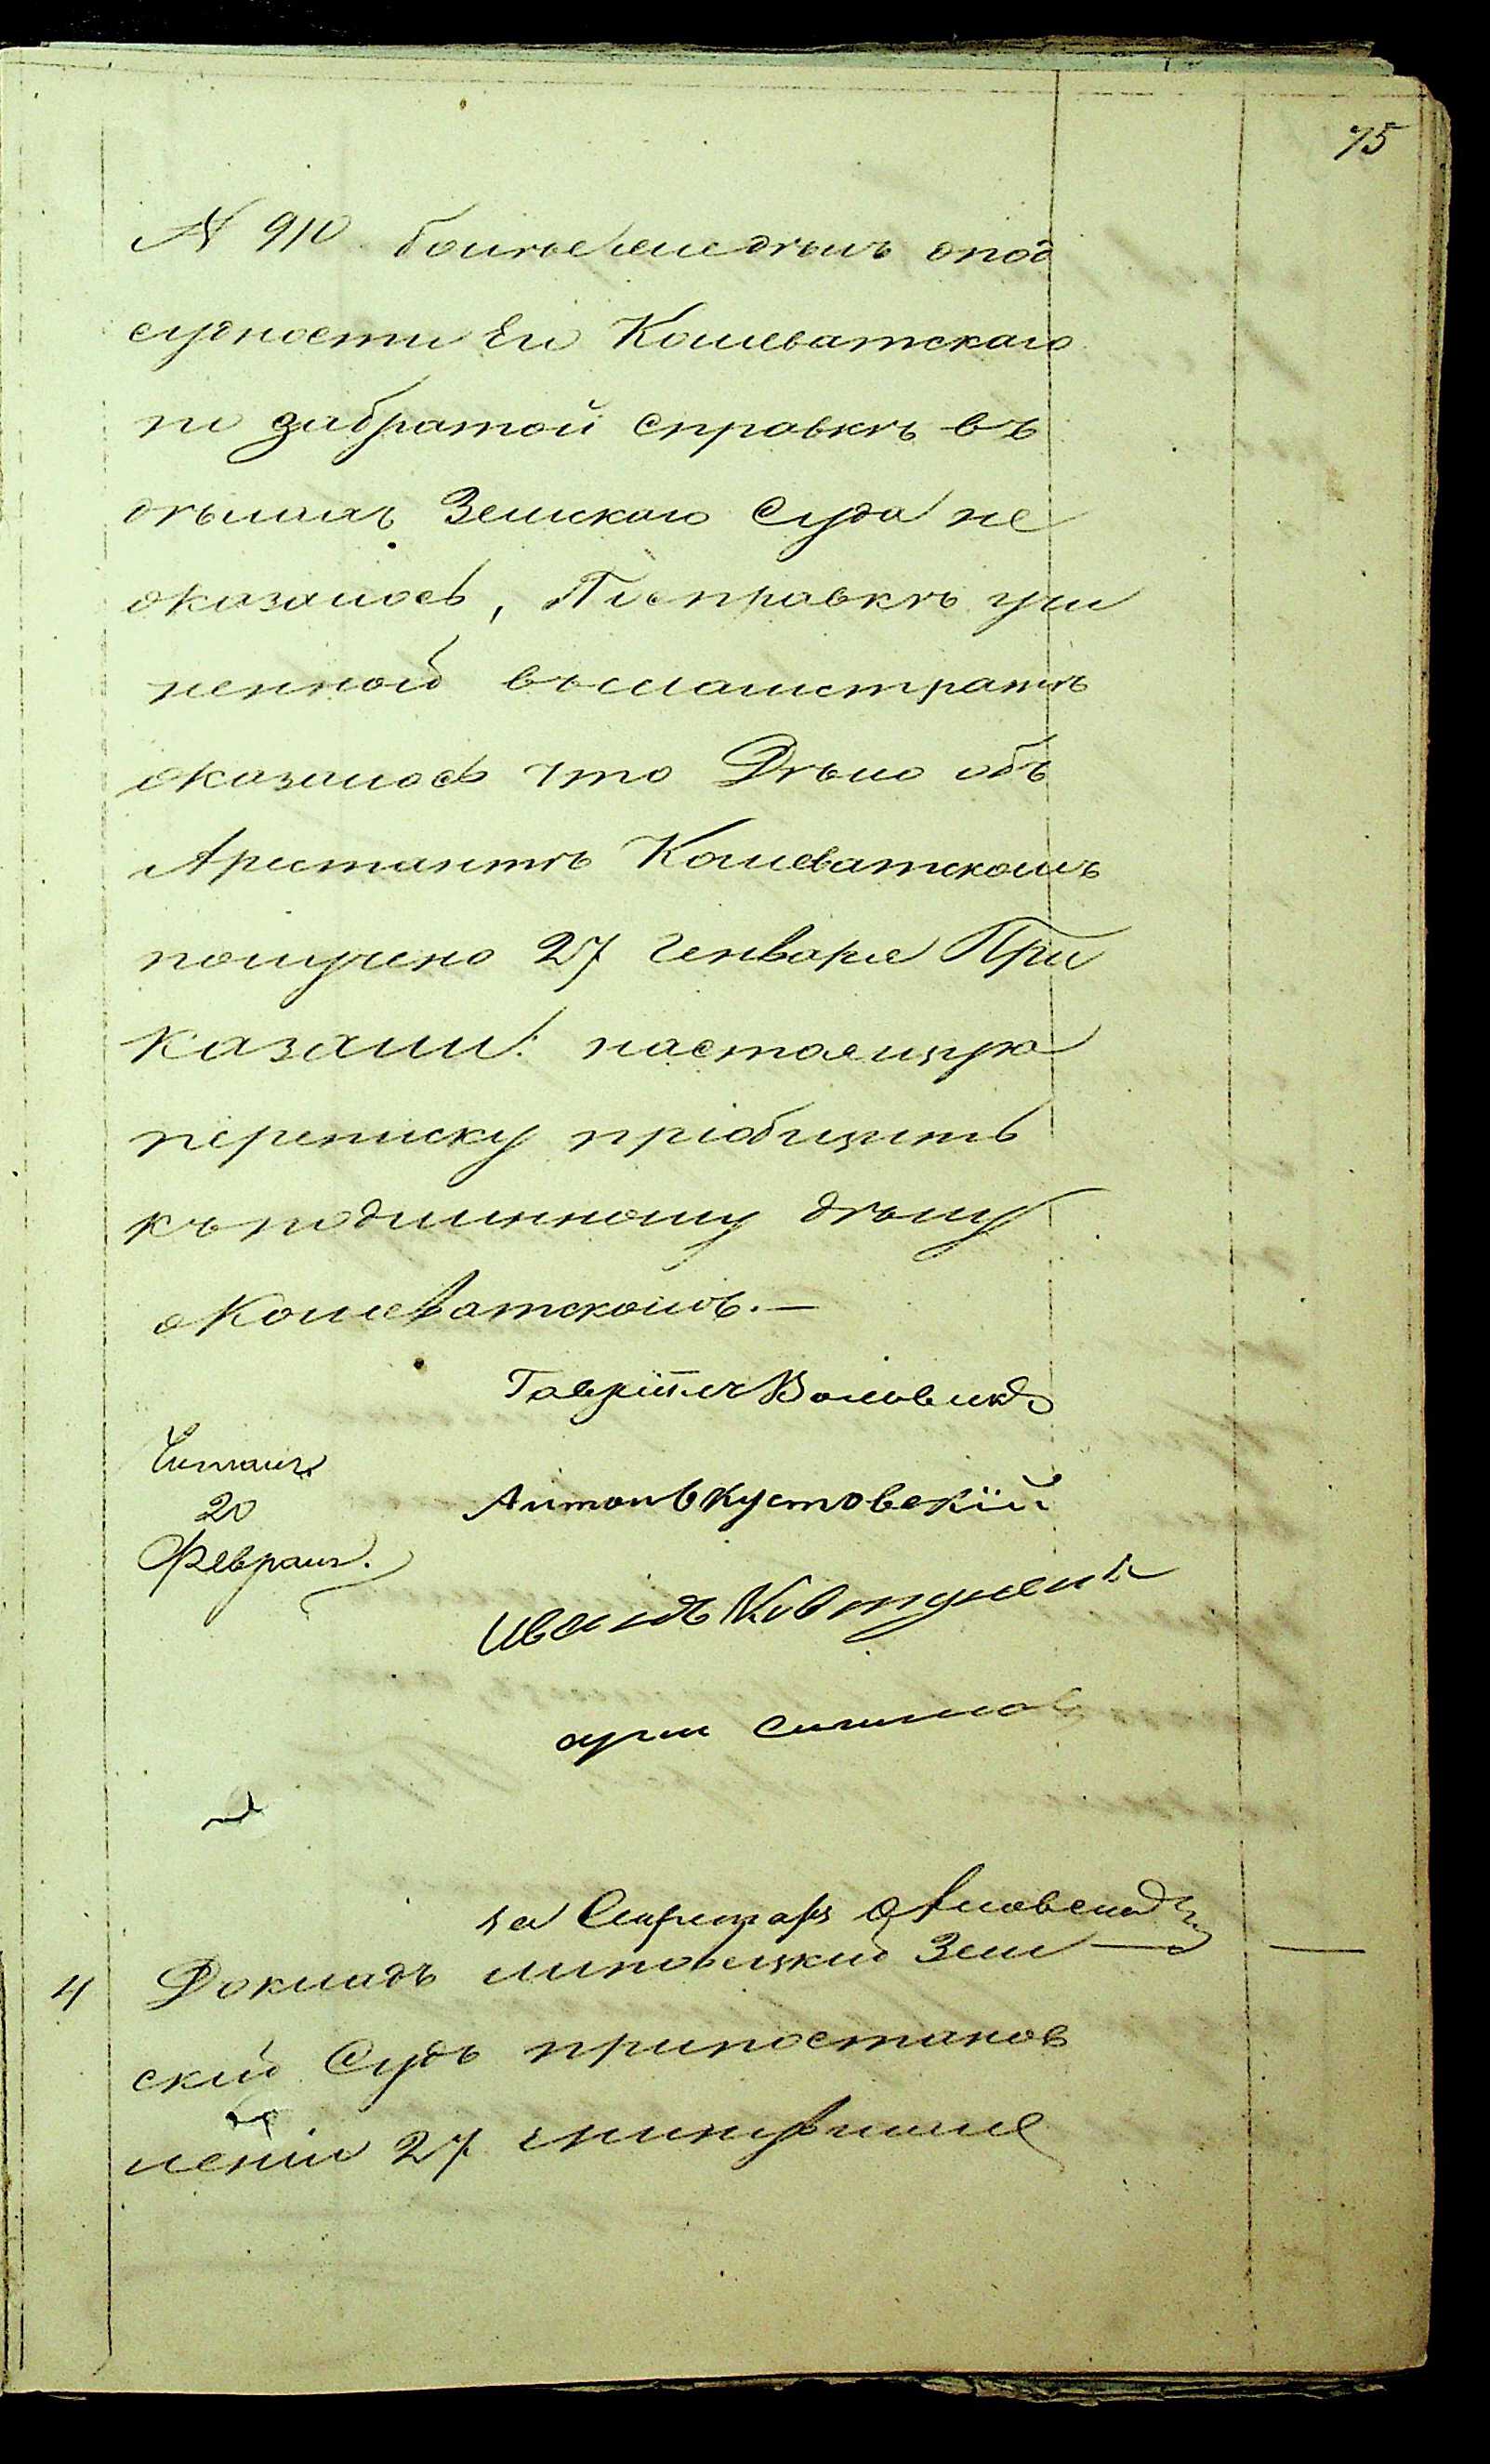 75
№ 910. болѣе слѣдовъ о под
судности Его Кошеватскаго
по забратой справкѣ въ
дѣлахъ Земскаго Суда не
оказалось, По справкѣ учи
ненной въ магистратѣ
оказалось что Дѣло объ
Арестантѣ Кошеватскомъ
получено 27 Генваря При
казали: настоящую
переписку пріобщить
къ подлинному дѣлу
о Кошеватскомъ.—
Гавріилъ Воловикъ
Читалъ
20
Февраля.
Антонъ Кустовскій
Иванъ Ковтуненко
за Секретаря
4 Докладъ липовецкій Зем
скій Судъ при постанов
леніи 27 минувшаго